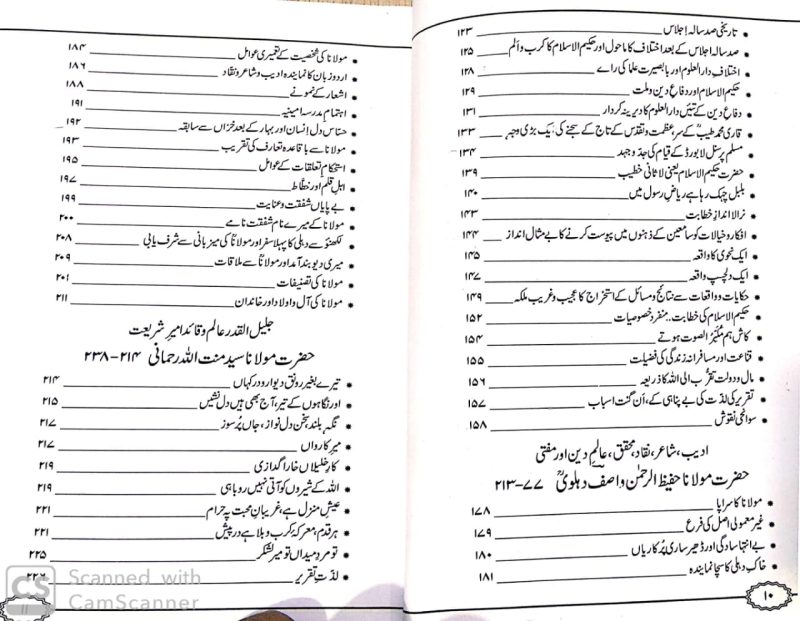 تاریخی صد سالہ اجلاس ۱۲۳
صد سالہ اجلاس کے بعد اختلاف کا ماحول اور حکیم الاسلام کا کرب و الم ۱۲۵
اختلافِ دارالعلوم اور بابصیرت علما کی رائے ۱۲۸
حکیم الاسلام اور دفاعِ دین و ملت ۱۲۹
دفاعِ دین کے تئیں دارالعلوم کا دیرینہ کردار ۱۳۱
قاری محمد طیبؒ کے سر عظمت و تقدس کے تاج کے سجنے کی، ایک بڑی وجہ ۱۳۳
مسلم پرسنل لا بورڈ کے قیام کی جد و جہد ۱۳۴
حضرت حکیم الاسلام یعنی لاثانی خطیب ۱۳۹
بلبل چہک رہا ہے ریاضِ رسول میں ۱۴۰
نرالا اندازِ خطابت ۱۴۳
افکار و خیالات کو سامعین کے ذہنوں میں پیوست کرنے کا بے مثال انداز ۱۴۴
ایک نحوی کا واقعہ ۱۴۵
ایک دلچسپ واقعہ ۱۴۷
حکایات و واقعات سے نتائج و مسائل کے استخراج کا عجیب و غریب ملکہ ۱۴۹
حکیم الاسلام کی خطابت.. منفرد خصوصیات ۱۵۲
کاش ہم مُکبّر الصوت ہوتے ۱۵۴
قناعت اور مسافرانہ زندگی کی فضیلت ۱۵۵
مال و دولت تقرّب الی اللہ کا ذریعہ ۱۵۶
تقریر کی لذت کی بے پناہی کے، اَن گنت اسباب ۱۵۷
سوانحی نقوش ۱۵۸
ادیب، شاعر، نقاد، محقق، عالمِ دین اور مفتی
حضرت مولانا حفیظ الرحمٰن واصف دہلویؒ ۷۷-۲۱۳
مولانا کا سراپا ۱۷۸
غیر معمولی اصل کی فرع ۱۷۹
بے انتہا سادگی اور ڈھیر ساری پُرکاریاں ۱۸۰
خاکِ دہلی کا سچا نمایندہ ۱۸۱
۱۰
مولانا کی شخصیت کے تعمیری عوامل ۱۸۴
اردو زبان کا نمایندہ ادیب و شاعر و نقاد ۱۸۶
اشعار کے نمونے ۱۸۸
اہتمام مدرسہ امینیہ ۱۹۱
حسّاس دلِ انسان اور بہار کے بعد خزاں سے سابقہ ۱۹۲
مولانا سے باقاعدہ تعارف کی تقریب ۱۹۳
استحکامِ تعلقات کے عوامل ۱۹۵
اہلِ قلم اور خطّاط ۱۹۷
بے پایاں شفقت و عنایت ۱۹۹
مولانا کے میرے نام شفقت نامے ۲۰۰
لکھنؤ سے دہلی کا پہلا سفر اور مولاناؒ کی میزبانی سے شرف یابی ۲۰۸
میری دیوبند آمد اور مولاناؒ سے ملاقات ۲۰۹
مولانا کی تصنیفات ۲۰۱
مولانا کی آل و اولاد اور خاندان ۲۱۱
جلیل القدر عالم و قائد امیرِ شریعت
حضرت مولانا سید منت اللہ رحمانی ۲۱۴-۲۳۸
تیرے بغیر رونق دیوار و در کہاں ۲۱۴
اور نگاہوں کے تیر، آج بھی ہیں دل نشیں ۲۱۵
نگہ بلند، سخن دل نواز، جاں پُرسوز ۲۱۷
میرِ کارواں ۲۱۷
کارِ خلیلاں خارا گدازی ۲۱۹
اللہ کے شیروں کو آتی نہیں روباہی ۲۱۹
عیشِ منزل ہے، غریبانِ محبت پہ حرام ۲۲۱
ہر قدم، معرکۂ کرب و بلا ہے درپیش ۲۲۱
تو مردِ میداں تو میرِ لشکر ۲۲۵
لذتِ تقریر
CS
Scanned with
CamScanner